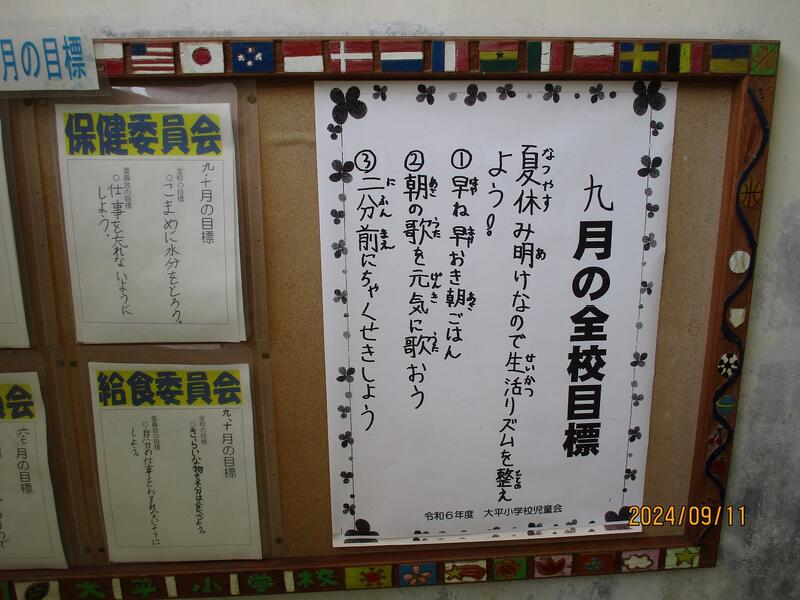 月の目標
九月の全校目標
夏休み明けなので生活リズムを整え
よう!
①早ね早おき朝ごはん
②朝の歌を元気に歌おう
③二分前にちゃくせきしよう
令和6年度 大平小学校児童会
保健委員会
九・十月の目標
全校の目標
○こまめに水分をとろう。
委員会の目標
○仕事を忘れないように
しよう。
給食委員会
九、十月の目標
全校の目標
委員会の目標
○自分の仕事をわすれないように
しよう
員会
六七月の目標
大平小学校
2024/09/11